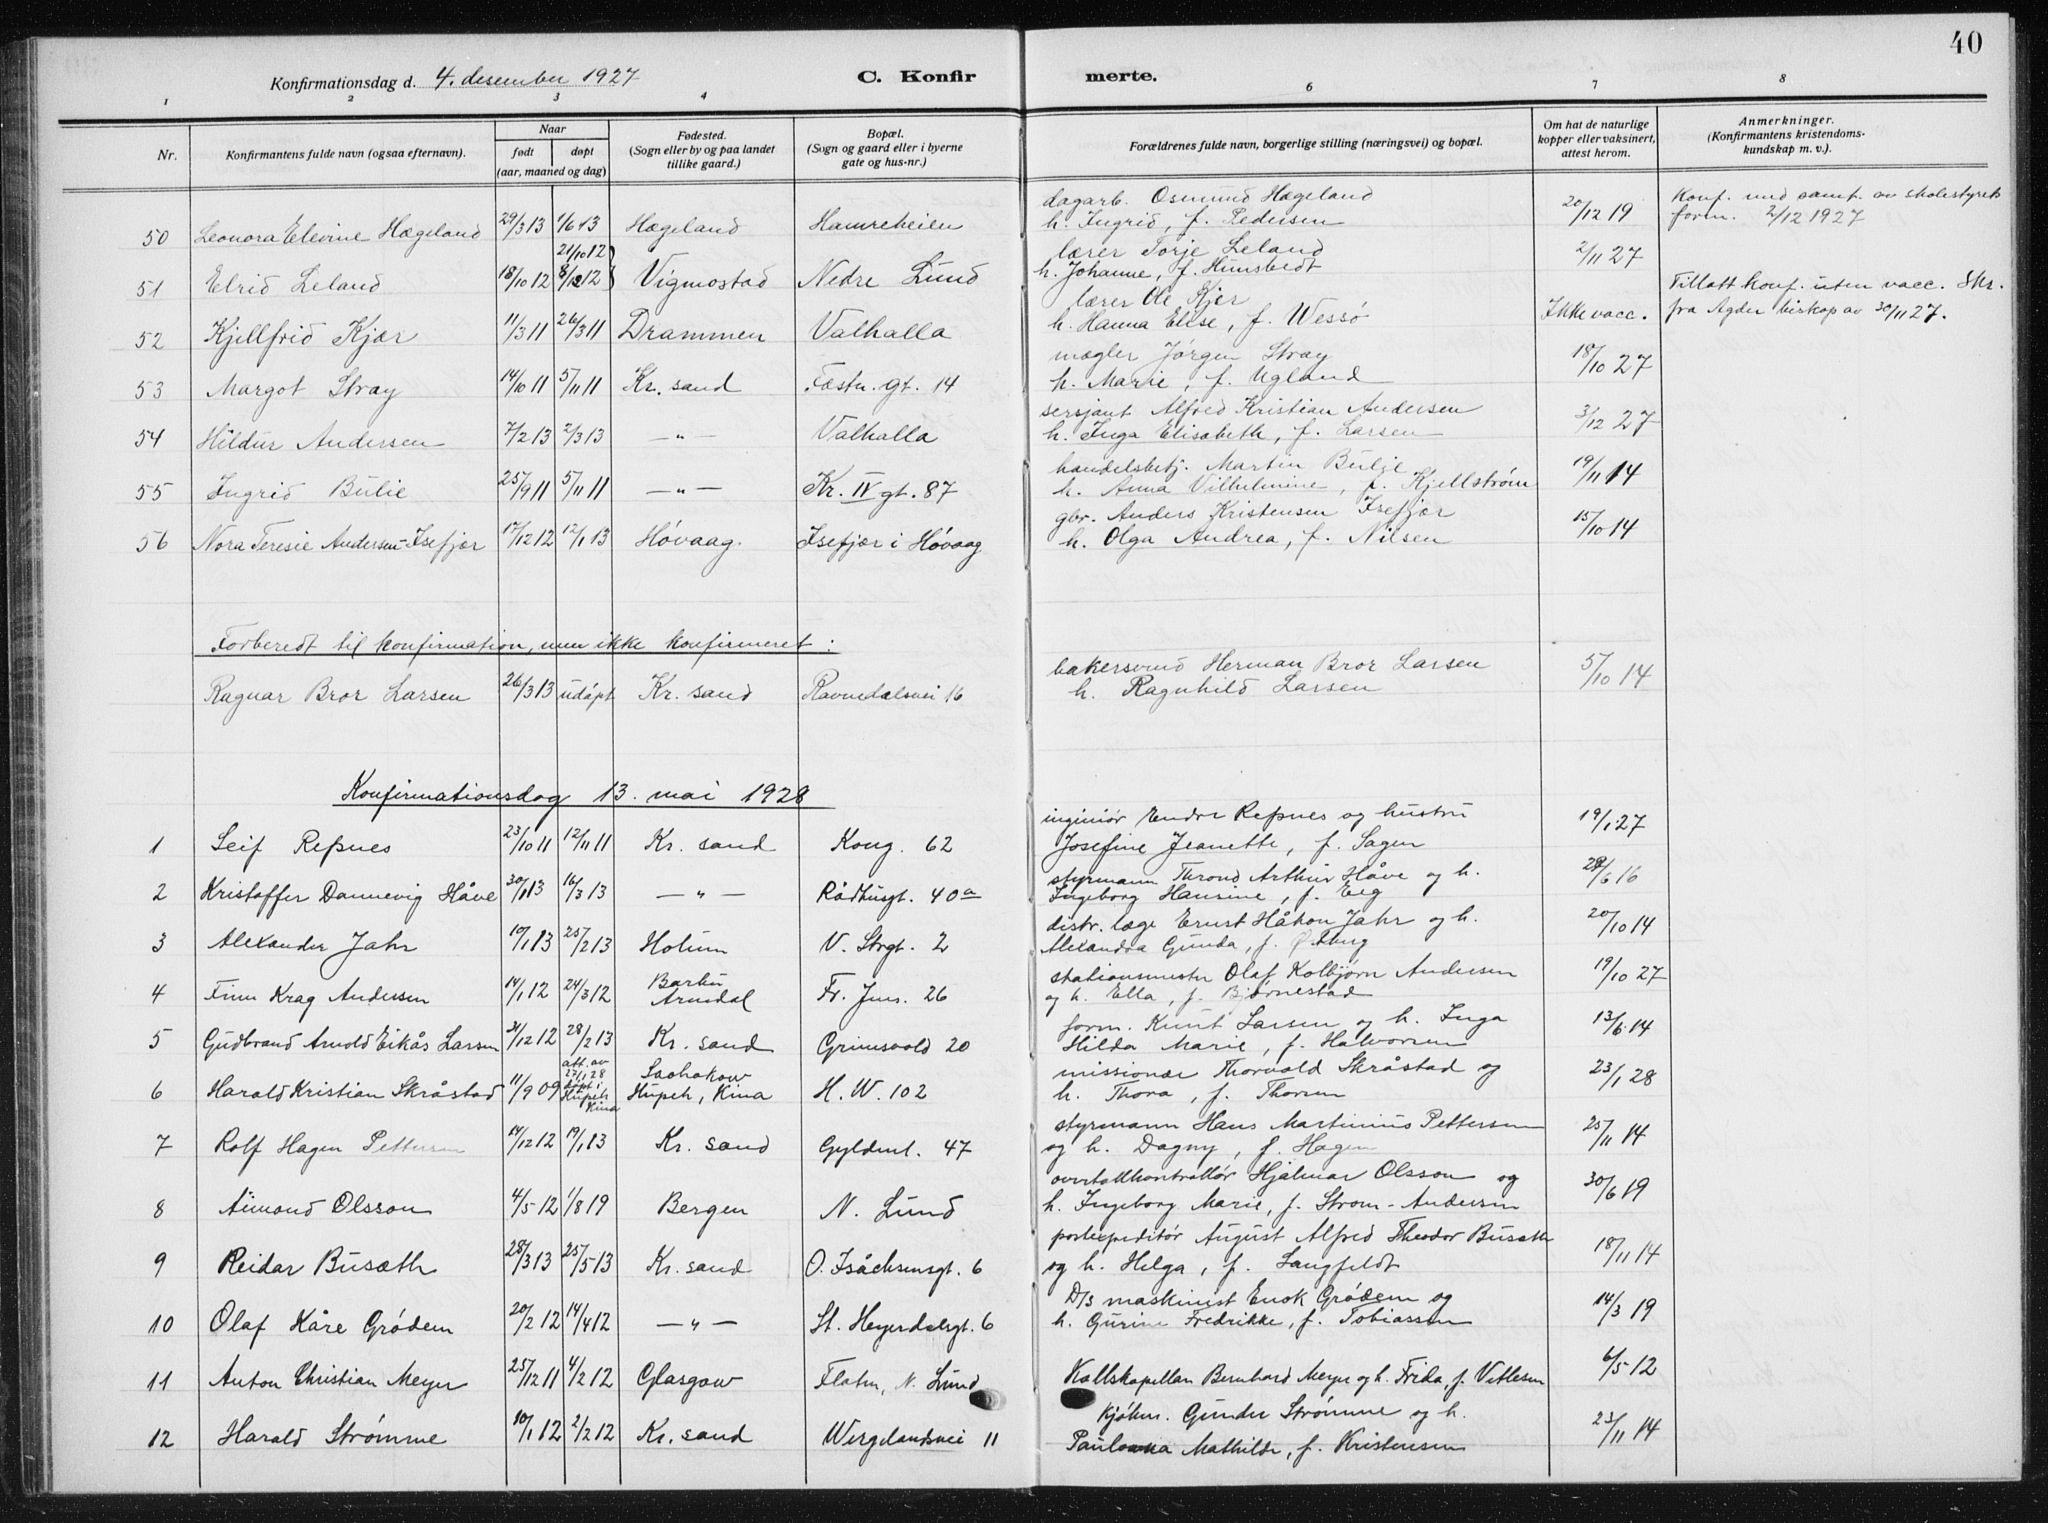 40
Konfirmationsdag d. 4. desember 1927 C. Konfirmerte.
1 2 3 4 6 7 8
Nr. Konfirmantens fulde navn (ogsaa efternavn). Naar født døpt (aar, maaned og dag) Fødested. (Sogn eller by og paa landet tillike gaard.) Bopæl. (Sogn og gaard eller i byerne gate og hus-nr.) Forældrenes fulde navn, borgerlige stilling (næringsvei) og bopæl. Om hat de naturlige kopper eller vaksinert, attest herom. Anmerkninger. (Konfirmantens kristendomskundskap m. v.).
50 Leonora Elevine Hægeland 29/3 13 1/6 13 Hægeland Hamreheien dagarb. Osmund Hægeland h. Ingrid, f. Pedersen 20/12 19 Konf. med samt. av skolestyrets form. 2/12 1927
51 Elrid Leland 18/10 12 21/10 12 8/12 12 Vigmostad Nedre Lund lærer Torje Leland h. Johanne, f. Hunsbedt 2/11 27
52 Kjellfrid Kjær 11/3 11 26/3 11 Drammen Valhalla lærer Ole Kjer h. Hanna Elise, f. Wessø Ikke vacc. Tillatt konf. uten vacc. Skr. fra Agder biskop av 30/11 27.
53 Margot Stray 14/10 11 5/11 11 Kr. sand Fæstn. gt. 14 mægler Jørgen Stray h. Marie, f. Ugland 18/10 27
54 Hildur Andersen 7/2 13 2/3 13 —"— Valhalla sersjant Alfred Kristian Andersen h. Inga Elisabeth, f. Larsen 3/12 27
55 Ingrid Bulie 25/9 11 5/11 11 —"— Kr. IV gt. 87 handelsbetj. Martin Bulje h. Anna Vilhelmine, f. Kjellstrøm 19/11 14
56 Nora Teresie Andersen-Isefjær 17/12 12 12/1 13 Høvaag. Isefjær i Høvaag gbr. Anders Kristensen Isefjær h. Olga Andrea, f. Nilsen 15/10 14
Forberedt til konfirmation, men ikke konfirmeret:
Ragnar Bror Larsen 26/3 13 udøpt Kr. sand Ravnedalsvei 16 bakersvend Herman Bror Larsen h. Ragnhild Larsen 5/10 14
Konfirmationsdag 13. mai 1928
1 Leif Repnes 23/10 11 12/11 11 Kr. sand Kong. 62 ingeniør Endre Repnes og hustru Josefine Jeanette, f. Sagen 19/1 27
2 Kristoffer Dannevig Håve 30/1 13 16/3 13 —"— Rådhusgt. 40a styrmann Thrond Arthur Håve og h. Ingeborg Hansine, f. Eeg 28/6 16
3 Alexander Jahr 10/1 13 25/2 13 Holum V. Strgt. 2 distr. læge Ernst Håkon Jahr og h. Alexandra Gunda, f. 20/10 14
4 Finn Krag Andersen 14/1 12 24/3 12 Barbu Arendal Fr. Jms. 26 stationsmester Olaf Kolbjørn Andersen og h. Ella, f. Bjørnestad 19/10 27
5 Gudbrand Arnold Eikås Larsen 21/12 12 28/2 13 Kr. sand Grimsvold 20 form. Knut Larsen og h. Inga Hilda Marie, f. Halvorsen 13/6 14
6 Harald Kristian Skråstad 11/9 09 att. av 27/1 28 døpt i Hupeh Kina Laohokow Hupeh, Kina H. W. 102 missionær Thorvald Skråstad og h. Thora, f. Thorsen 23/1 28
7 Rolf Hagen Pettersen 14/12 12 19/1 13 Kr. sand Gyldenl. 47 styrmann Hans Martinius Pettersen og h. Dagny, f. Hagen 25/11 14
8 Aimond Olsson 4/5 12 1/8 19 Bergen N. Lund overtollkontrollør Hjalmar Olsson og h. Ingeborg Marie, f. Strom-Andersen 30/6 19
9 Reidar Busæth 28/3 13 25/5 13 Kr. sand O. Isåchsensgt. 6 postexpeditør August Alfred Theodor Busæth og h. Helga, f. Langfeldt 18/11 14
10 Olaf Kåre Grødem 20/2 12 14/4 12 —"— St. Heyerdalsgt. 6 D/S maskinist Enok Grødem og h. Gurine Fredrikke, f. Tobiassen 14/3 19
11 Anton Christian Meyer 25/12 11 4/2 12 Glasgow Flaten, N. Lund Kallskapellan Bernhard Meyer og h. Frida, f. Vetlesen 6/5 12
12 Harald Strømme 10/1 12 2/2 12 Kr. sand Wergelandsvei 11 kjøbm. Gunder Strømme og h. Paulowna Mathilde, f. Kristensen 23/11 14